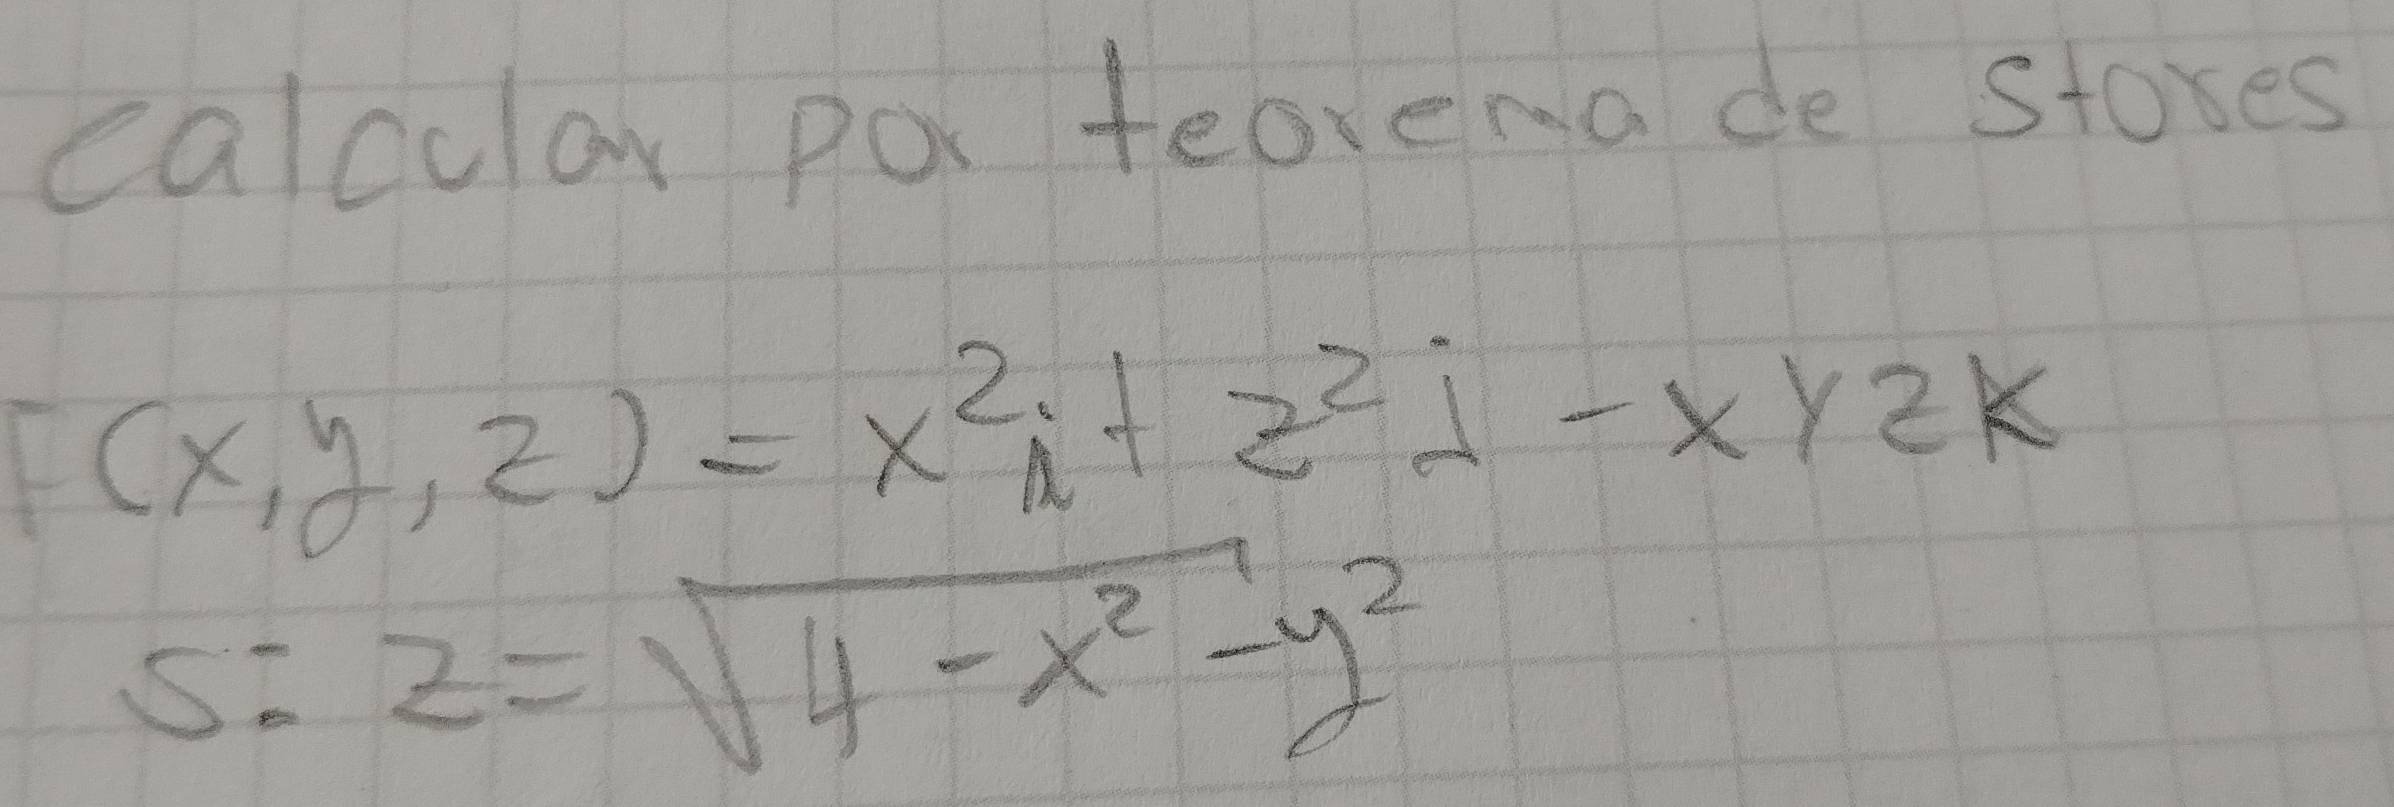 calcular por teorema de stokes
F(x,y,z) = x²i + z²j - xyzk
S: z = √4-x²-y²